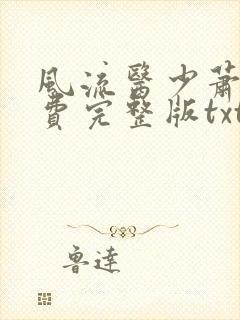 風流醫少蕭
費完整版txt
魯達